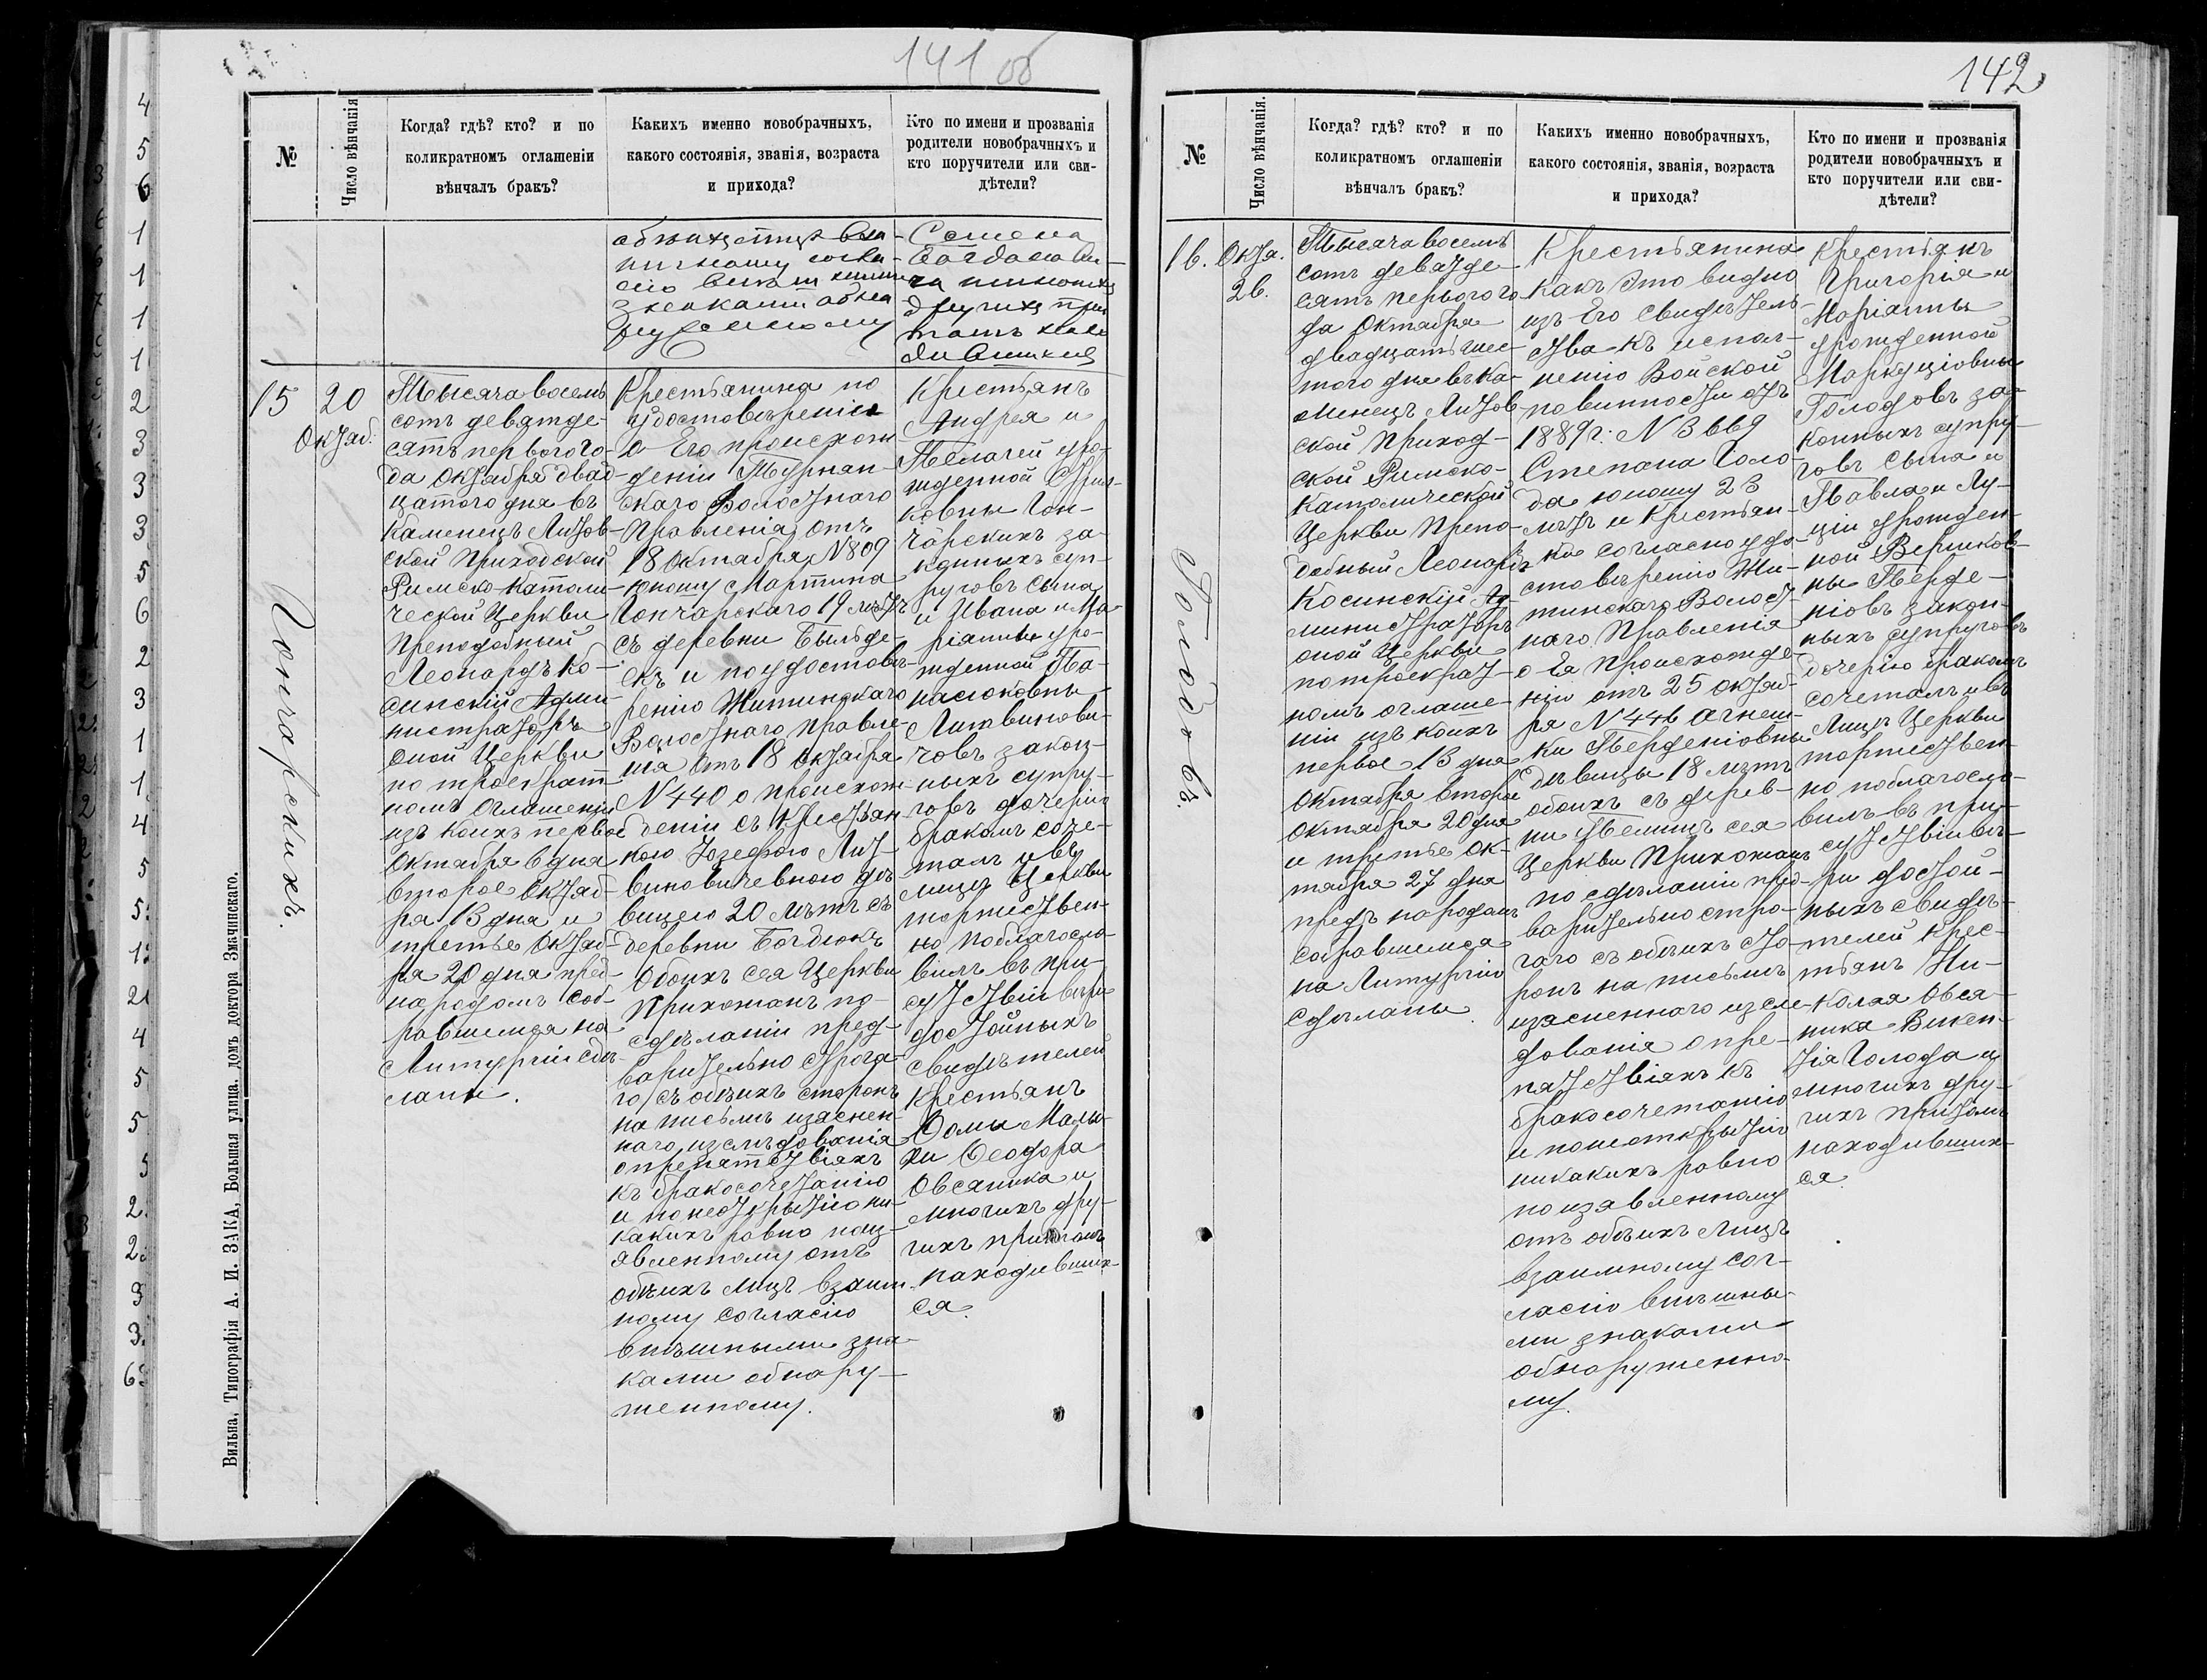 141 об
№
Число вѣнчанія
Когда? гдѣ? кто? и по
коликратномъ оглашеніи
вѣнчалъ бракъ?
Какихъ именно новобрачныхъ,
какого состоянія, званія, возраста
и прихода?
Кто по имени и прозванія
родители новобрачныхъ и
кто поручители или сви-
дѣтели?
знаками
Семена
другихъ
15
20
Октяб.
Гончарскихъ.
Тысяча восемь
сотъ девятде-
сятъ первого го-
да Октября двад-
цатого дня въ
Каменецъ Литов-
ской Приходской
Римско Католи-
ческой Церкви
Преподобный
Леонардъ Ко-
синскій Адми-
нистраторъ
оной Церкви
по троекрат-
номъ оглашеніи
изъ коихъ первое
Октября 6 дня
второе Октяб-
ря 13 дня и
третье Октяб-
ря 20 дня пред-
народомъ соб-
равшемся на
Литургіи сдѣ-
ланы.
Крестьянина по
удостовѣренію
о Его происхож
деніи Турнан-
скаго Волостнаго
Правленія отъ
18 Октября N 809
юношу Мартина
Гончарскаго 19 лѣтъ
съ деревни Быльде-
екъ и по удостовѣ-
ренію Житинскаго
Волостнаго Правле-
нія отъ 18 Октября
N 440 о происхож-
деніи съ Крестьян-
кою Іозефою Лит-
виновичевною дѣ-
вицею 20 лѣтъ съ
деревни Богдюкъ
Обоихъ сея Церкви
Прихожанъ по
сдѣланіи пред-
варительно строга-
го съ обѣихъ сторонъ
на письмѣ изяснен-
наго изслѣдованія
о препятствіяхъ
къ бракосочетанію
и по неоткрытію ни-
какихъ равно поиз-
явленному отъ
обѣихъ лицъ взаим-
ному согласію
внѣшными зна-
ками обнару-
женному.
Крестьянъ
Андрея и
Пелагеи уро-
жденной
ковны Гон-
чарскихъ за-
конныхъ суп-
руговъ сына
и Ивана и Ма-
ріанны уро-
жденной Па-
насюковны
Литвинови-
човъ закон-
ныхъ супру-
говъ дочерію
бракомъ соче-
талъ и въ
лицѣ Церкви
торжествен-
но поблагосло-
вилъ въ при-
сутствіи вѣри
достойныхъ
свидѣтелей
Крестьянъ
Ѳомы Малы-
хи Ѳеодора
Овсяника и
многихъ дру-
гихъ притомъ
находивших-
ся.
Вильна, Типографія А. И. ЗАКА, Большая улица. домъ доктора Змачинскаго.
142
№
Число вѣнчанія.
Когда? гдѣ? кто? и по
коликратномъ оглашеніи
вѣнчалъ бракъ?
Какихъ именно новобрачныхъ,
какого состоянія, званія, возраста
и прихода?
Кто по имени и прозванія
родители новобрачныхъ и
кто поручители или сви-
дѣтели?
16.
Октя.
26.
Голодовъ.
Тысяча восемь
сотъ девятде-
сятъ первого го-
да Октября
двадцать шес-
того дня въ Ка-
менецъ Литов-
ской Приход-
ской Римско-
Католической
Церкви Препо-
добный Леонардъ
Косинскій Ад-
министраторъ
оной Церкви
по троекрат-
номъ оглаше-
ніи изъ коихъ
первое 13 дня
Октября второе
Октября 20 дня
и третье Ок-
тября 27 дня
предъ народомъ
собравшемся
на Литургію
сдѣланы.
Крестьянина
какъ Это видно
изъ Его свидѣтель-
ства къ испол-
ненію Войской
повинности отъ
1889 г: N 3669
Степана Голо-
да юношу 23
лѣтъ и Крестьян-
ки согласно удо-
стовѣренію Жи-
тинскаго Волост-
наго Правленія
о Ея Происхожде-
ніи отъ 25 Октяб-
ря N 446 Агнеш-
ки Перденіовны
дѣвицы 18 лѣтъ
обоихъ съ дерев-
ни Пелищъ сея
Церкви Прихожанъ
по сдѣланіи пред-
варительно стро-
гаго съ обѣихъ сто-
ронъ на письмѣ
изясненнаго изслѣ-
дованія о пре-
пятствіяхъ къ
бракосочетанію
и по неоткрытію
никакихъ равно
по изявленному
отъ обѣихъ лицъ
взаимному сог-
ласію внѣшны-
ми знаками
обнаруженно-
му.
Крестьянъ
Григорія и
Маріанны
урожденной
Маркуціовны
Голодовъ за-
конныхъ супру-
говъ сына и
Павла и Лу-
ціи урожден-
ной Вериков-
ны Перде-
ніовъ закон-
ныхъ супруговъ
дочерію бракомъ
сочеталъ и въ
Лицѣ Церкви
торжествен-
но поблагосло-
вилъ въ при-
сутствіи вѣ-
ри достой-
ныхъ свидѣ-
телей Крес-
тьянъ Ни-
колая Овся-
ника Викен-
тія Голода и
многихъ дру-
гихъ притомъ
находивших-
ся.